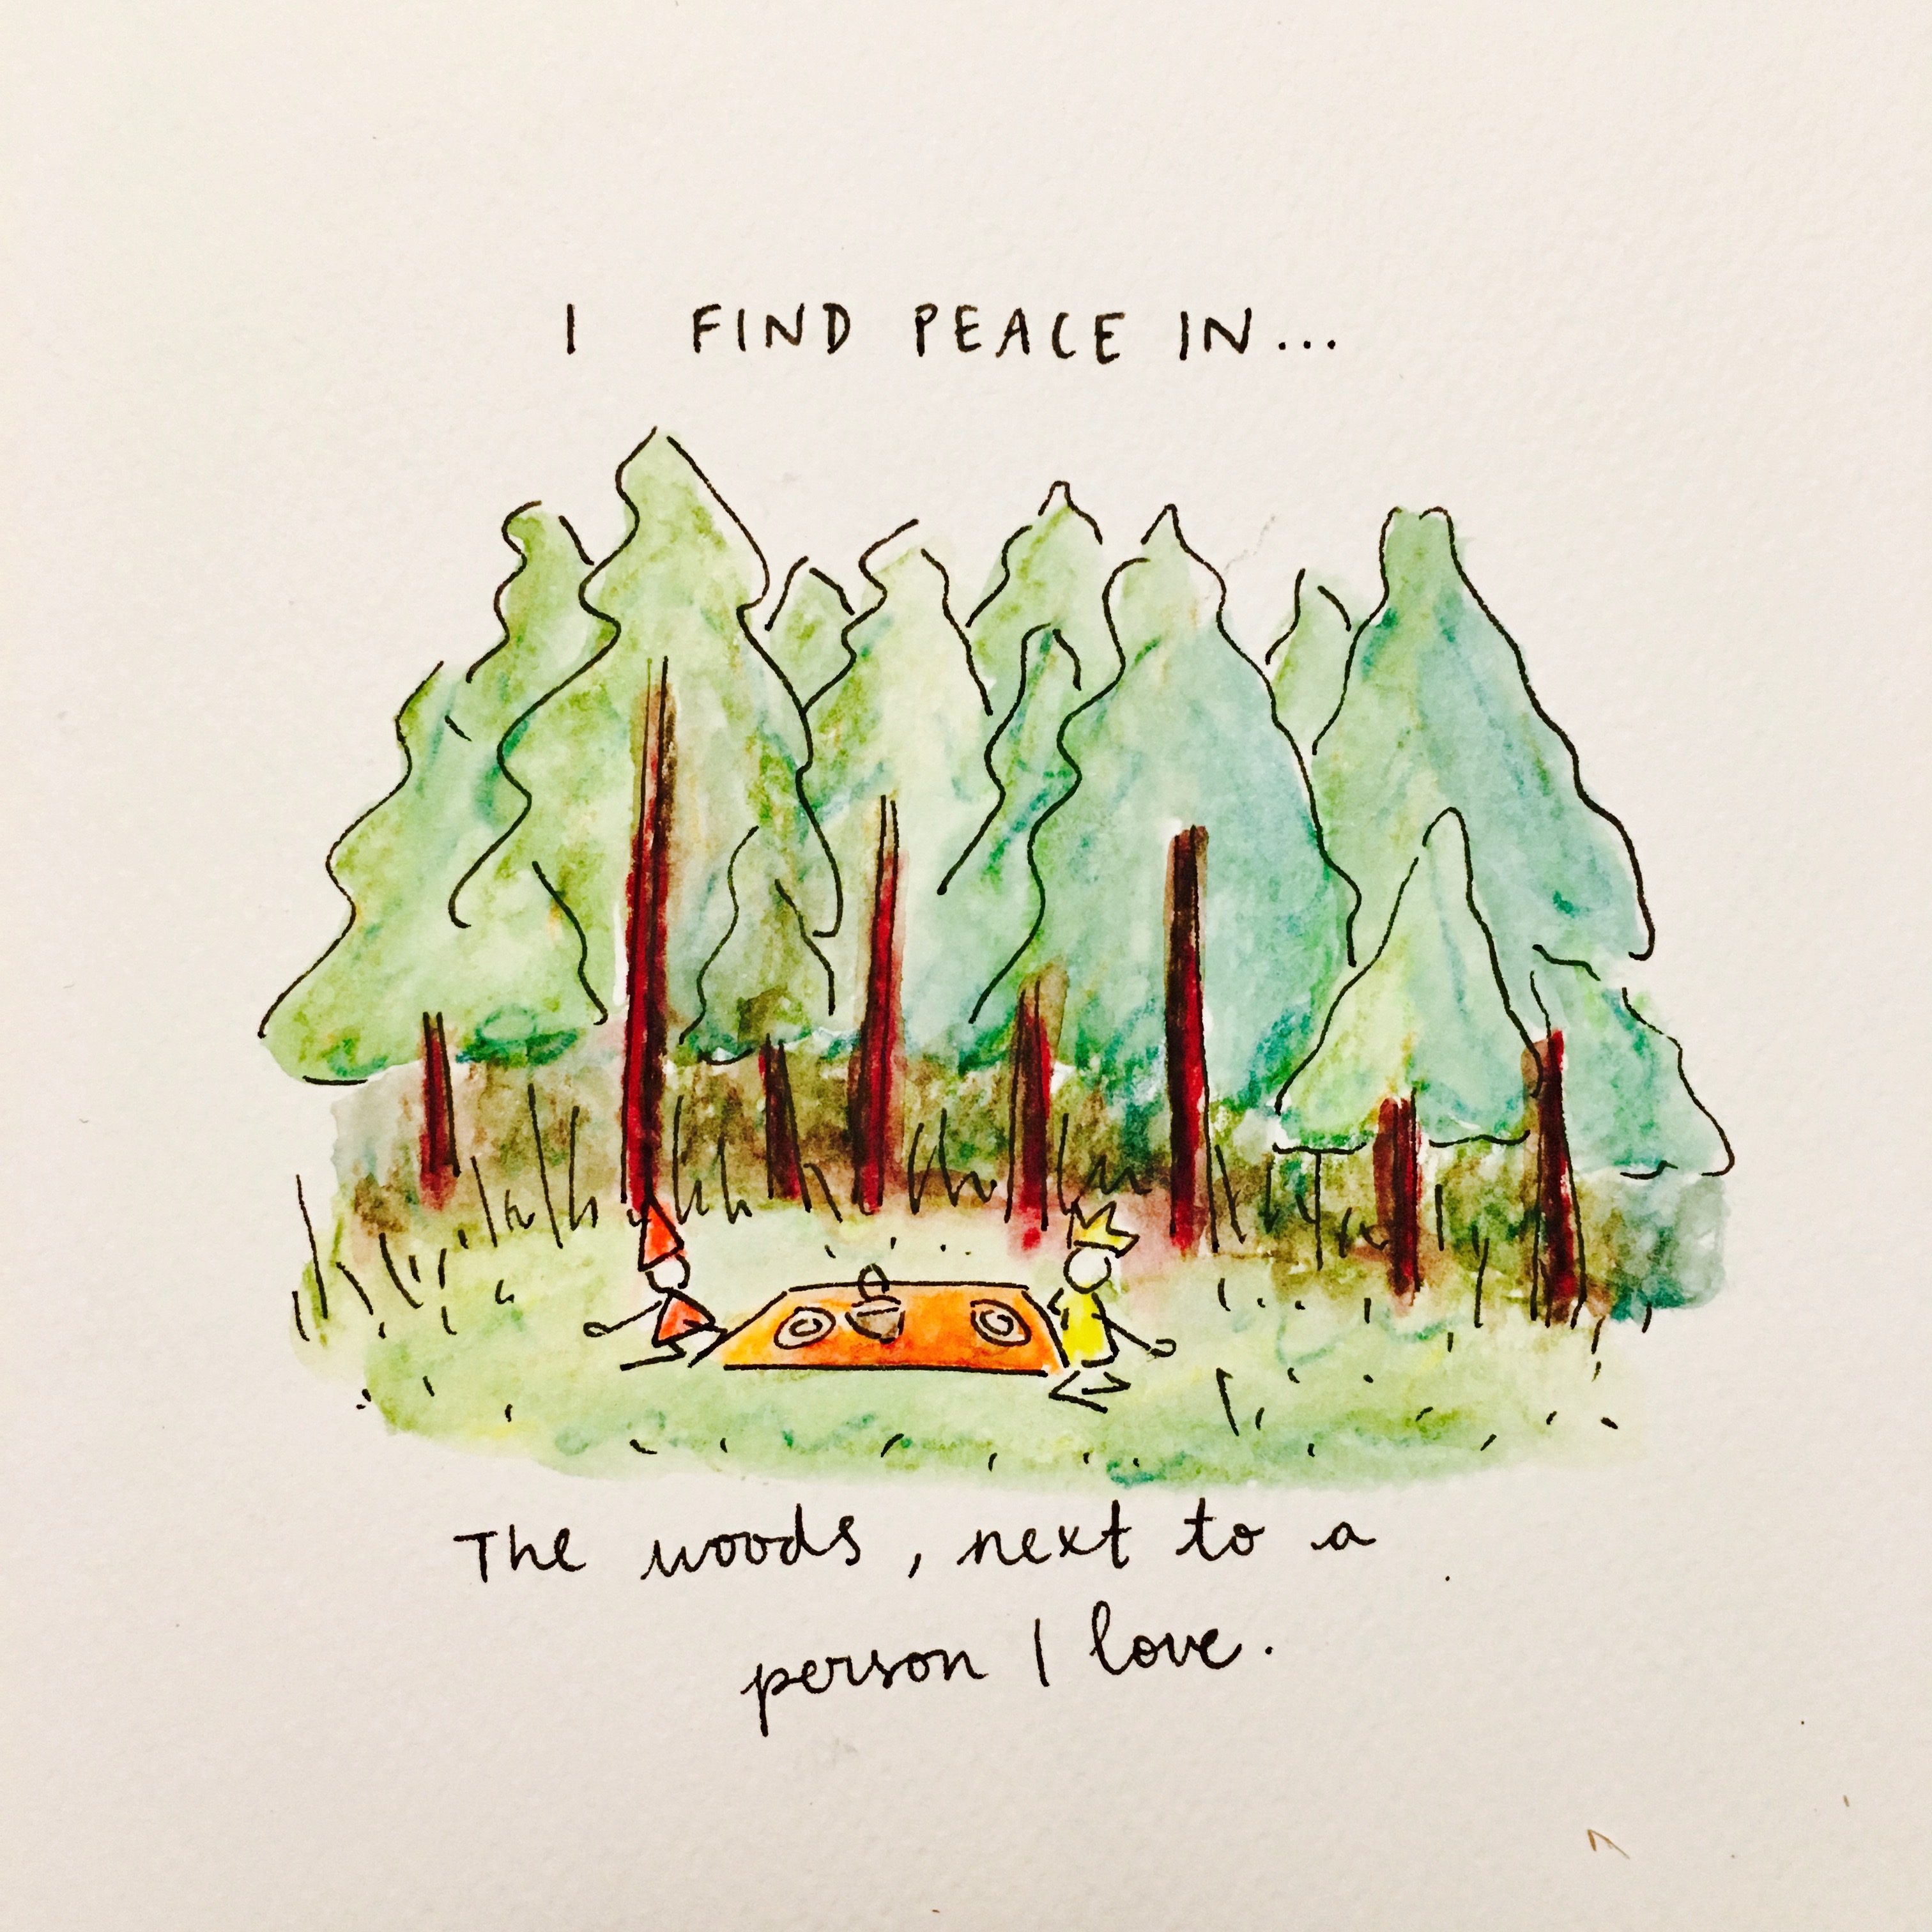 I FIND PEACE IN...
The woods, next to a
person I love.